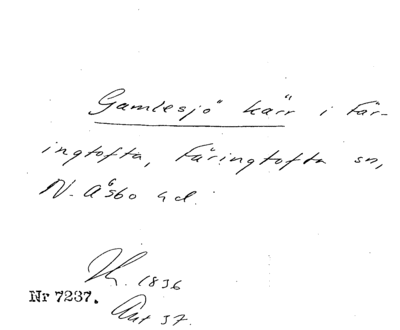 Gamlesjö kärr i Fär-
ingtofta, Färingtofta sn,
N. Åsbo hd.
1836
Nr 7237.
37.